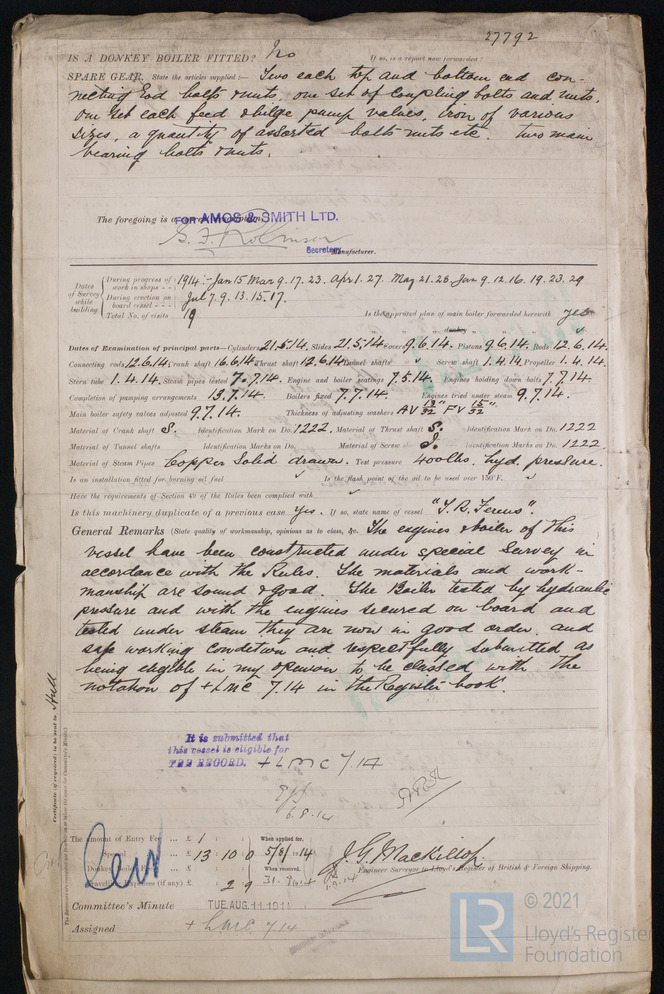 27792
IS A DONKEY BOILER FITTED? No If so, is a report now forwarded?
SPARE GEAR. State the articles supplied:— Two each top and bottom end con-
necting rod bolts & nuts, one set of coupling bolts and nuts,
one set each feed & bilge pump valves, iron of various
sizes, a quantity of assorted bolts nuts etc. two main
bearing bolts & nuts.
The foregoing is a correct description,
FOR AMOS & SMITH LTD.
G. F. Robinson
Secretary. Manufacturer.
Dates of Survey while building
During progress of work in shops - - 1914:- Jan 15 Mar 9. 17. 23. Apr 1. 27. May 21. 26. Jun 9. 12. 16. 19. 23. 29
During erection on board vessel - - - Jul 7. 9. 13. 15. 17.
Total No. of visits 19 Is the approved plan of main boiler forwarded herewith yes
" " " donkey " " "
Dates of Examination of principal parts—Cylinders 21.5.14. Slides 21.5.14. Covers 9.6.14. Pistons 9.6.14. Rods 12.6.14.
Connecting rods 12.6.14. Crank shaft 16.6.14. Thrust shaft 12.6.14. Tunnel shafts ✓ Screw shaft 1.4.14. Propeller 1.4.14.
Stern tube 1.4.14. Steam pipes tested 7.7.14. Engine and boiler seatings 7.5.14. Engines holding down bolts 7.7.14.
Completion of pumping arrangements 13.7.14. Boilers fixed 7.7.14. Engines tried under steam 9.7.14.
Main boiler safety valves adjusted 9.7.14. Thickness of adjusting washers AV 13/32" FV 15/32"
Material of Crank shaft S. Identification Mark on Do. 1222. Material of Thrust shaft S. Identification Mark on Do. 1222
Material of Tunnel shafts Identification Marks on Do. Material of Screw shaft S. Identification Marks on Do. 1222
Material of Steam Pipes Copper Solid drawn. Test pressure 400 lbs. hyd. pressure.
Is an installation fitted for burning oil fuel ✓ Is the flash point of the oil to be used over 150°F. ✓
Have the requirements of Section 49 of the Rules been complied with ✓
Is this machinery duplicate of a previous case Yes. If so, state name of vessel "T. R. Ferens".
General Remarks (State quality of workmanship, opinions as to class, &c. The engines & boiler of this
vessel have been constructed under special Survey in
accordance with the Rules. The materials and work-
manship are sound & good. The Boiler tested by hydraulic
pressure and with the engines secured on board and
tested under steam they are now in good order and
safe working condition and respectfully submitted as
being eligible in my opinion to be classed with the
notation of + LMC 7.14 in the Register book.
It is submitted that
this vessel is eligible for
THE RECORD. + LMC 7.14
6.8.14
Certificate (if required) to be sent to Hull
The amount of Entry Fee ... £ 1 When applied for,
£ 13 10 0 5/8/14
Donkey £ When received,
Travelling Expenses (if any) £ 2 9
J. G. Mackillop
Engineer Surveyor to Lloyd's Register of British & Foreign Shipping.
Committee's Minute TUE. AUG. 11. 1914
Assigned + LMC 7.14
© 2021
LR Lloyd's Register
Foundation